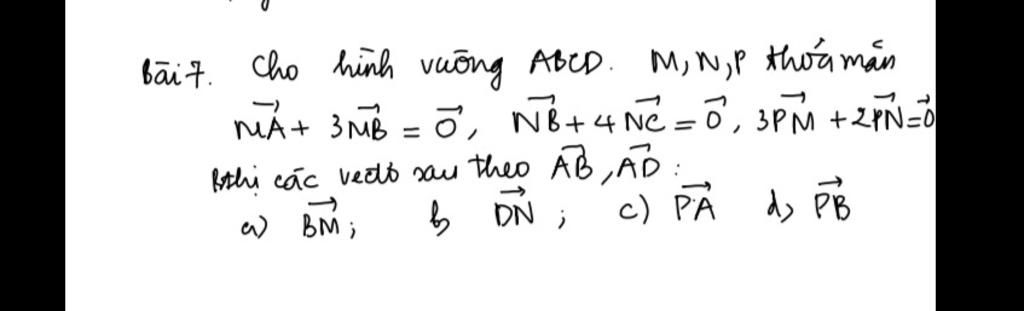 Bài 7. Cho hình vuông ABCD. M, N, P thoả mãn
$\overrightarrow{MA} + 3\overrightarrow{MB} = \vec{0}$, $\overrightarrow{NB} + 4\overrightarrow{NC} = \vec{0}$, $3\overrightarrow{PM} + 2\overrightarrow{PN} = \vec{0}$
Bthị các vectơ sau theo $\overrightarrow{AB}$, $\overrightarrow{AD}$ :
a) $\overrightarrow{BM}$ ; b) $\overrightarrow{DN}$ ; c) $\overrightarrow{PA}$ d) $\overrightarrow{PB}$